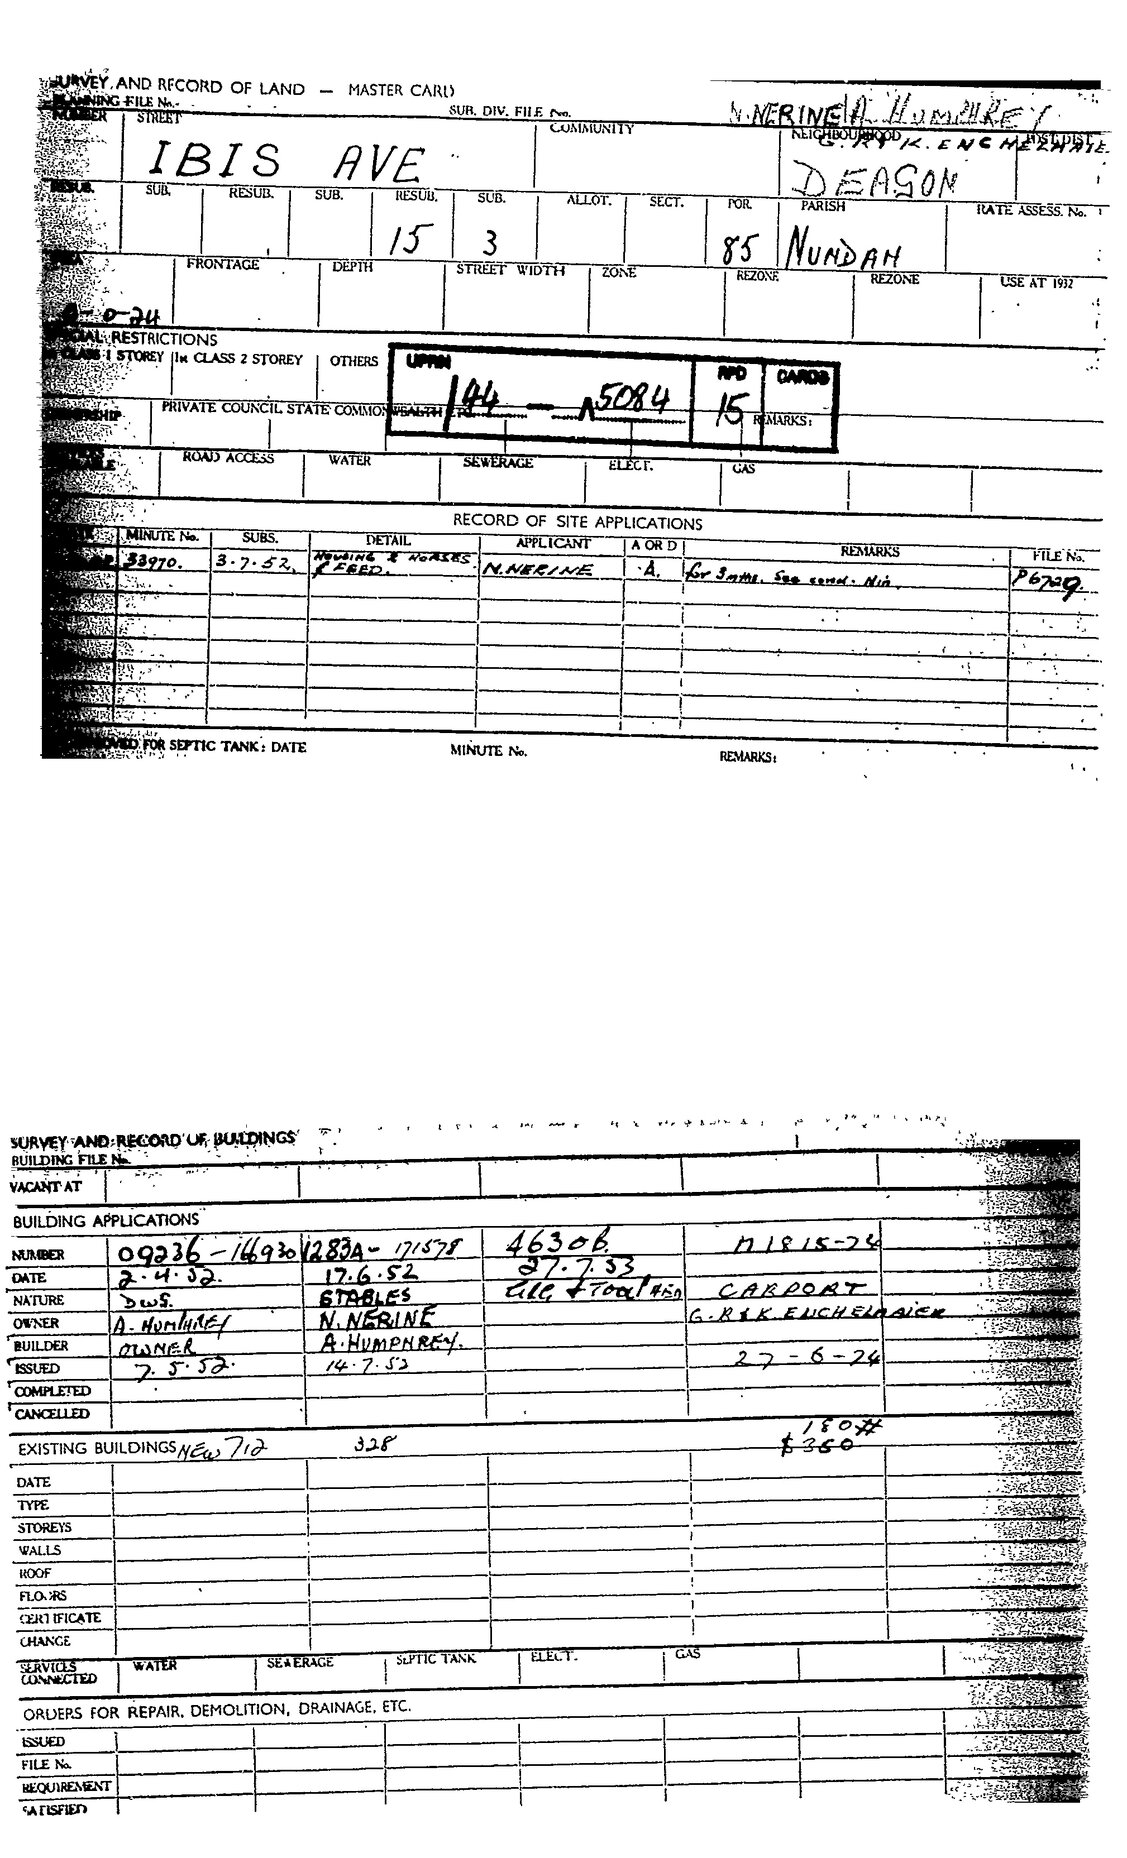 SURVEY AND RECORD OF LAND — MASTER CARD
PLANNING FILE No. SUB. DIV. FILE No. N. NERINE A HUMPHREY
NUMBER STREET COMMUNITY NEIGHBOURHOOD POST. DIST.
IBIS AVE DEAGON
RESUB. SUB. RESUB. SUB. RESUB. SUB. ALLOT. SECT. POR. PARISH RATE ASSESS. No.
15 3 85 NUNDAH
AREA FRONTAGE DEPTH STREET WIDTH ZONE REZONE REZONE USE AT 1932
0-0-24
SPECIAL RESTRICTIONS
IN CLASS 1 STOREY IN CLASS 2 STOREY OTHERS UPRN RPD CARDS
144 — A5084 15
OWNERSHIP PRIVATE COUNCIL STATE COMMONWEALTH REMARKS:
SERVICES AVAILABLE ROAD ACCESS WATER SEWERAGE ELECT. GAS
RECORD OF SITE APPLICATIONS
MINUTE No. SUBS. DETAIL APPLICANT A OR D REMARKS FILE No.
33970. 3.7.52. HOUSING 2 HORSES & FEED. N. NERINE A. for 3 mths. See cond. Min. P6729.
APPROVED FOR SEPTIC TANK: DATE MINUTE No. REMARKS:
SURVEY AND RECORD OF BUILDINGS
BUILDING FILE No.
VACANT AT
BUILDING APPLICATIONS
NUMBER 09236-166930 1283A- 171578 46306. M1815-74
DATE 2.4.52. 17.6.52 27.7.53
NATURE DWG. STABLES CARPORT
OWNER A. HUMPHREY N. NERINE G. R & K. ENGHELMAIER
BUILDER OWNER A. HUMPHREY.
ISSUED 7.5.52. 14.7.52 27-6-74
COMPLETED
CANCELLED
180#
EXISTING BUILDINGS NEW 712 328 $350
DATE
TYPE
STOREYS
WALLS
ROOF
FLOORS
CERTIFICATE
CHANGE
SERVICES CONNECTED WATER SEWERAGE SEPTIC TANK ELECT. GAS
ORDERS FOR REPAIR, DEMOLITION, DRAINAGE, ETC.
ISSUED
FILE No.
REQUIREMENT
SATISFIED